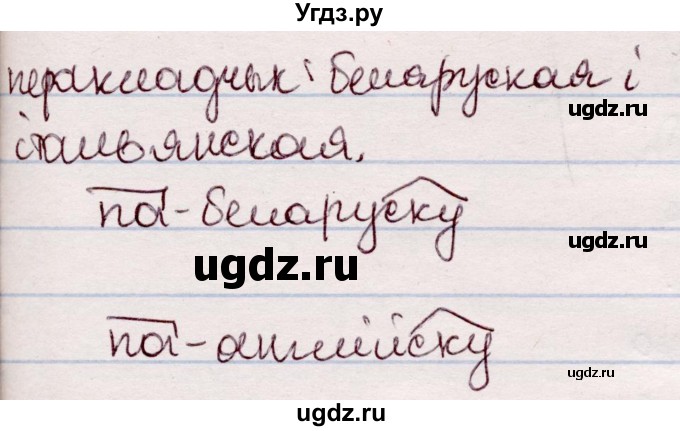 Угдз.ру
перакладчык: беларуская і
ugdz.ru
італьянская.
па-беларуску
ugdz.ru
ugdz.ru
па-англійску
ugdz.ru
ugdz.ru